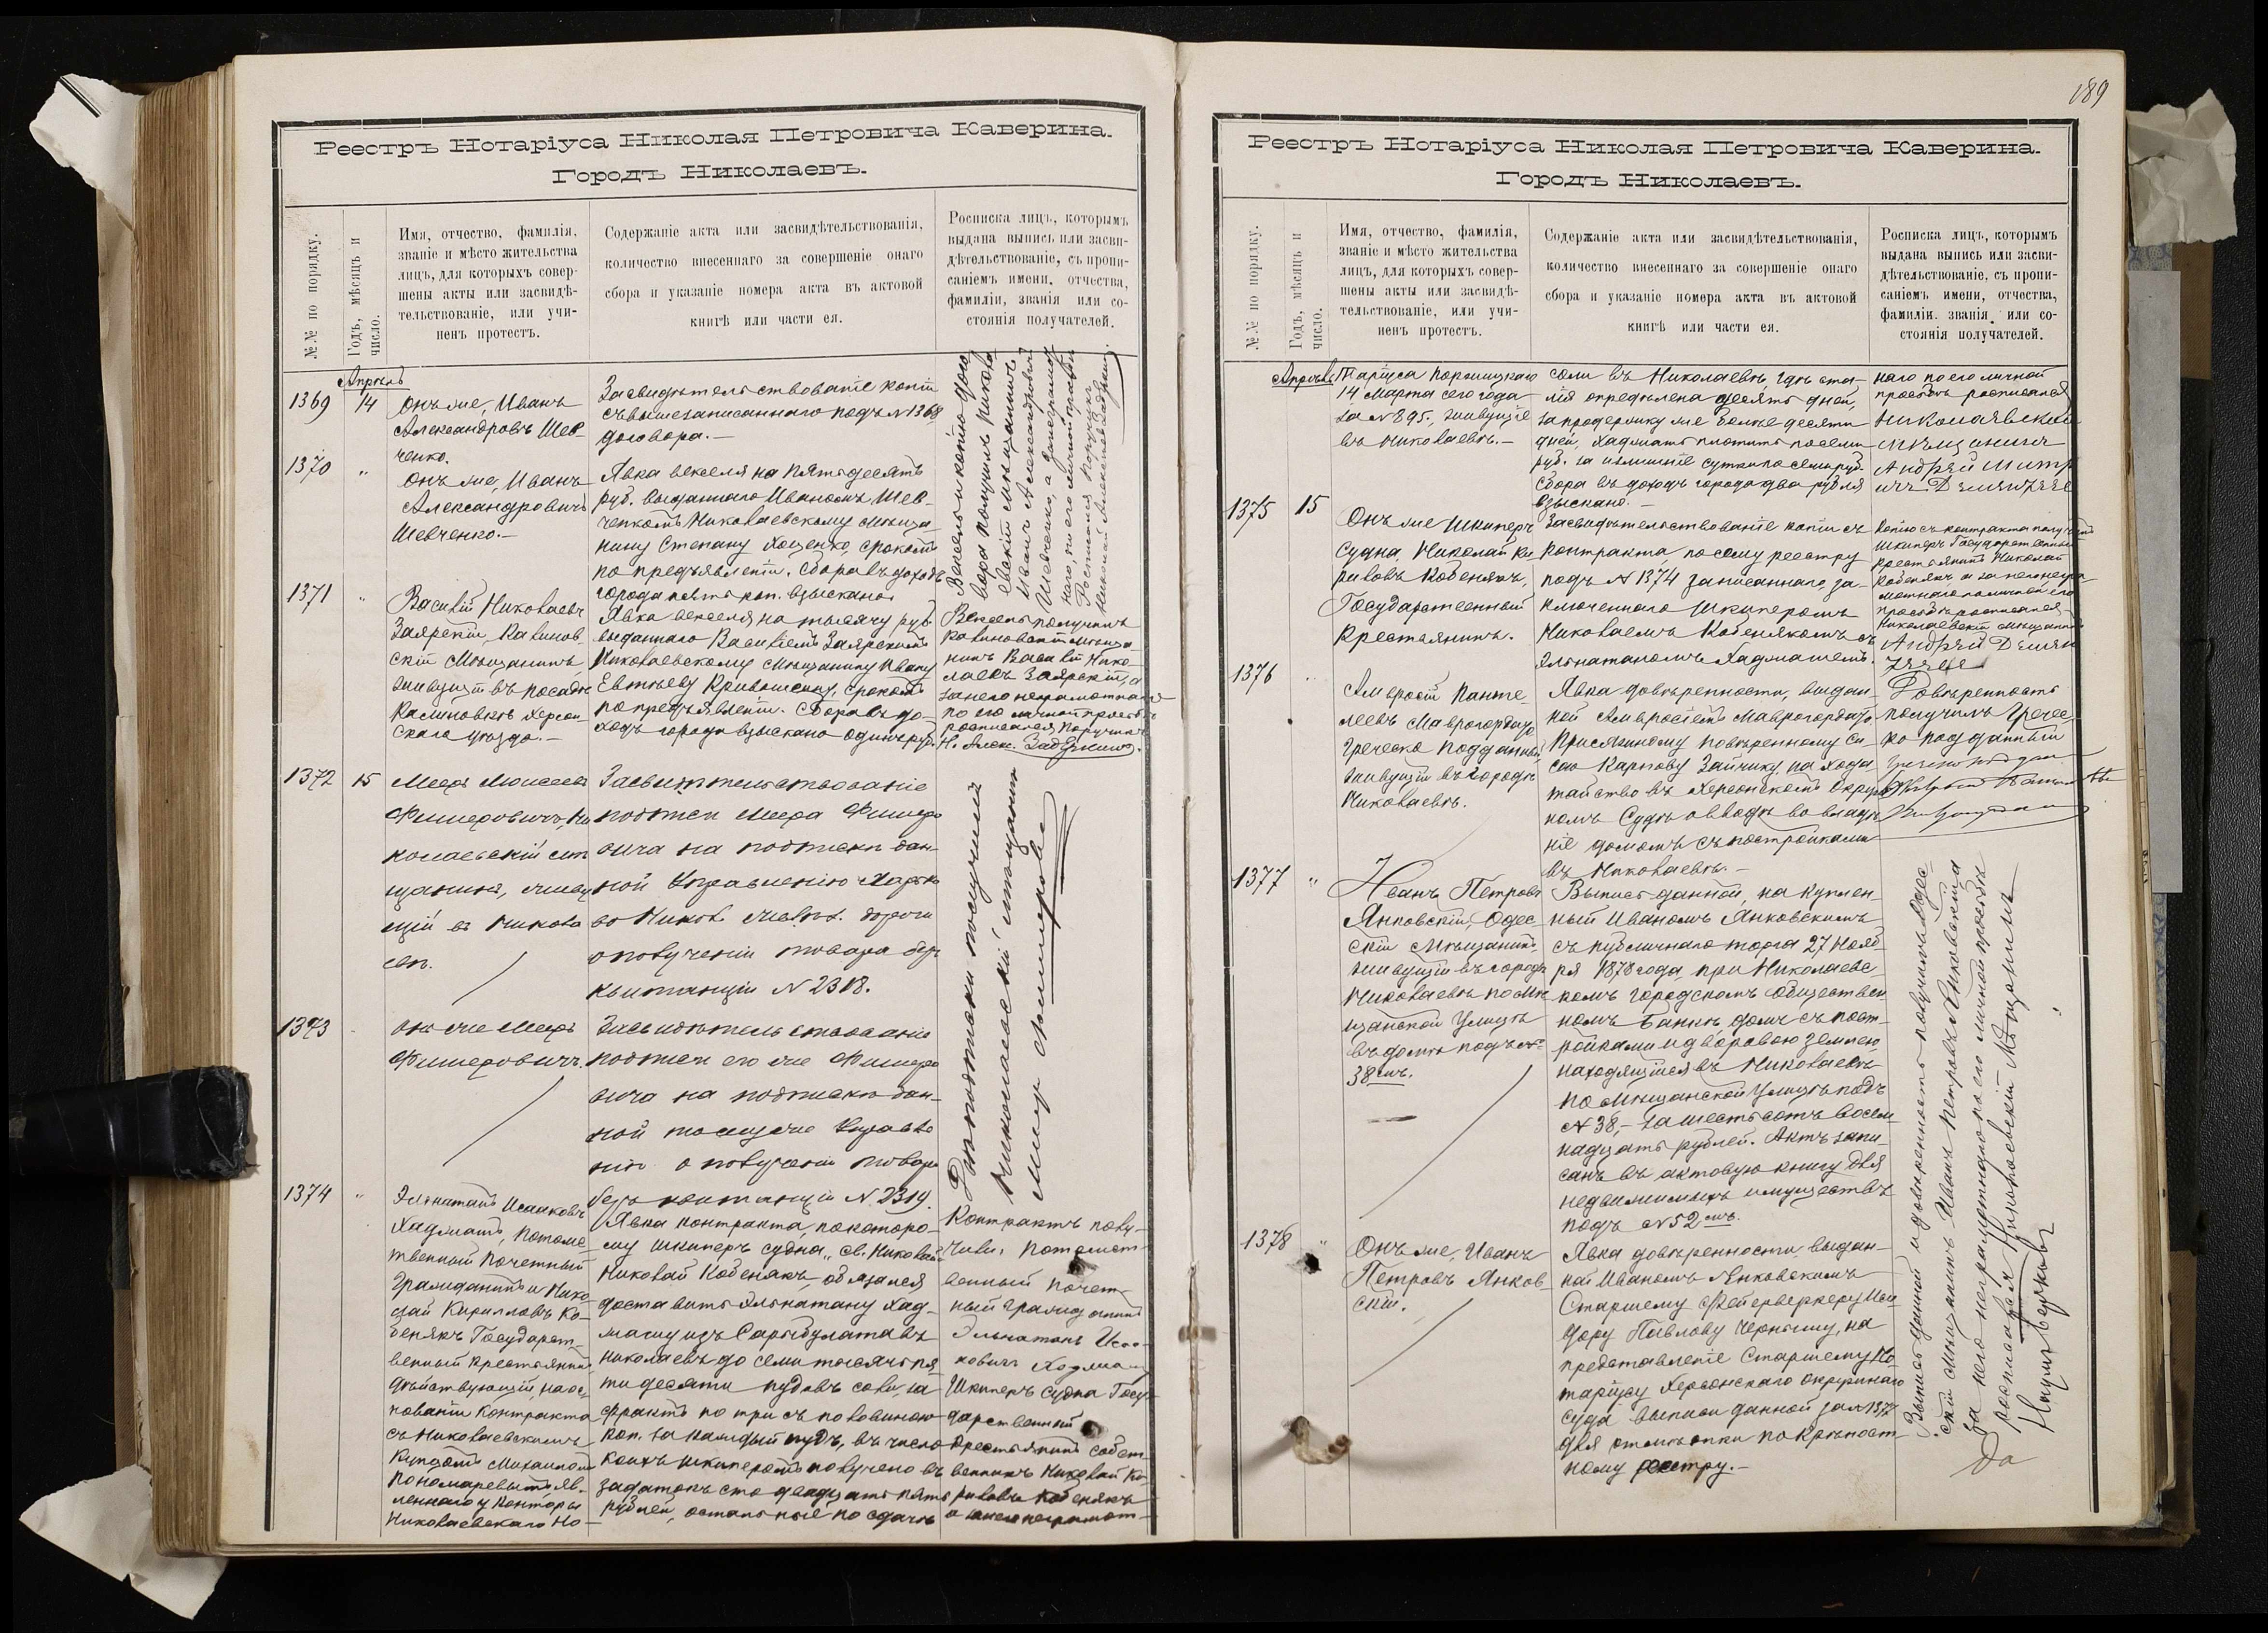 Реестръ Нотаріуса Николая Петровича Каверина.
Городъ Николаевъ.
№№ по порядку.
Годъ, мѣсяцъ и
число.
Имя, отчество, фамилія,
званіе и мѣсто жительства
лицъ, для которыхъ совер-
шены акты или засвидѣ-
тельствованіе, или учи-
ненъ протестъ.
Содержаніе акта или засвидѣтельствованія,
количество внесеннаго за совершеніе онаго
сбора и указаніе номера акта въ актовой
книгѣ или части ея.
Росписка лицъ, которымъ
выдана выпись или засви-
дѣтельствованіе, съ пропи-
саніемъ имени, отчества,
фамиліи, званія или со-
стоянія получателей.
Апрѣль
1369
14
Онъ же, Иванъ
Александровъ Шев-
ченко.
Засвидѣтельствованіе копіи
съ вышезаписаннаго подъ №1368
договора.—
1370
"
Онъ же, Иванъ
Александровичъ
Шевченко.—
Явка векселя на пятьдесятъ
руб. выданнаго Иваномъ Шев-
ченкомъ Николаевскому мѣща-
нину Степану Хоценко, срокомъ
по предъявленіи. Сбора въ доходъ
города пять коп. взыскано
Вексель и копію дого
вора получилъ Никола
евскій мѣщанинъ
Иванъ Александровичъ
Шевченко, а
наго, по его личной просьбѣ
1371
"
Василій Николаевъ
Заярскій, Калинов-
скій мѣщанинъ
живущій въ посадѣ
Калиновкѣ Херсон
скаго уѣзда.—
Явка векселя на тысячу руб.
выданнаго Василіемъ Заярскимъ
Николаевскому мѣщанину Ивану
Евтѣеву Кривошеину, срокомъ
по предъявленіи. Сбора въ до-
ходъ города взыскано одинъ руб.
Вексель получилъ
Калиновскій мѣща
нинъ Василій Нико-
лаевъ Заярскій, а
за него неграмотнаго
по его личной просьбѣ
росписался Поручикъ
1372
15
Мееръ Моисеевъ
Фишеровичъ, Ни
колаевскій мѣ
щанинъ, живу
щій въ Никола
евѣ.
Засвидѣтельствованіе
подписи Меера Фишеро
вича на подпискѣ дан-
ной Управленію Харько
во Никол. желѣзн. дороги
о полученіи товара безъ
квитанціи №2318.
1373
Онъ же Мееръ
Фишеровичъ.
Засвидѣтельствованіе
подписи его же Фишеро
вича на подпискѣ дан-
ной тому же Управле
нію о полученіи товара
безъ квитанціи №2319.
Двѣ подписки получилъ
Николаевскій мѣщанинъ
Мееръ Фишеровичъ
1374
"
Эльнатанъ Исааковъ
Хаджиашъ, Потомс-
твенный Почетный
Гражданинъ и Нико-
лай Кирилловъ Ко-
бенякъ Государст-
венный Крестьянинъ
дѣйствующій на ос-
нованіи Контракта
съ Николаевскимъ
Купцомъ Михаиломъ
Пономаревымъ яв-
леннаго у Конторы
Николаевскаго Но-
Явка контракта, по которо-
му шкиперъ судна "Св. Николай"
Николай Кобенякъ, обязался
доставить Эльнатану Хад-
жиашу изъ Сарыбулата въ
Николаевъ до семи тысячъ пя
тидесяти пудовъ соли, за
фрахтъ по три съ половиною
коп. за каждый пудъ, въ число
коихъ шкиперомъ получено въ
задатокъ сто двадцать пять
рублей, остальные по сдачѣ
Контрактъ полу-
чили, Потомст-
венный Почет-
ный Гражданинъ
Эльнатанъ Исаа-
ковичъ Хаджиашъ
Шкиперъ судна Госу-
дарственный
Крестьянинъ
Николай Ки-
риловъ Кобенякъ
а за него неграмот-
189
Реестръ Нотаріуса Николая Петровича Каверина.
Городъ Николаевъ.
№№ по порядку.
Годъ, мѣсяцъ и
число.
Имя, отчество, фамилія,
званіе и мѣсто жительства
лицъ, для которыхъ совер-
шены акты или засвидѣ-
тельствованіе, или учи-
ненъ протестъ.
Содержаніе акта или засвидѣтельствованія,
количество внесеннаго за совершеніе онаго
сбора и указаніе номера акта въ актовой
книгѣ или части ея.
Росписка лицъ, которымъ
выдана выпись или засви-
дѣтельствованіе, съ пропи-
саніемъ имени, отчества,
фамиліи, званія или со-
стоянія получателей.
Апрѣль
таріуса
14 Марта сего года
за №895, живущіе
въ Николаевѣ.—
соли въ Николаевѣ, гдѣ ста-
лія опредѣлена десять дней,
за продержку же болѣе десяти
дней, Хаджиашъ платитъ по семи
руб. за излишніе сутки по семь руб.
Сбора въ доходъ города два рубля
взыскано.—
наго по его личной
просьбѣ росписался
Николаевскій
мѣщанинъ
Андрей
1375
15
Онъ же шкиперъ
судна Николай Ки
риловъ Кобенякъ,
Государственный
Крестьянинъ.
Засвидѣтельствованіе копіи съ
контракта по сему реестру
подъ №1374 записаннаго, за-
ключеннаго шкиперомъ
Николаемъ Кобенякомъ съ
Эльнатаномъ Хаджиашемъ.
Копію съ контракта получилъ
Шкиперъ Государственный
Крестьянинъ Николай
Кобенякъ а за него негра
мотнаго по личной его
просьбѣ росписался
Николаевскій мѣщанинъ
Андрей
1376
"
Амвросій Панте
леевъ Маврогордато
Греческо Подданный
живущій въ городѣ
Николаевѣ.
Явка довѣренности, выдан-
ной Амвросіемъ Маврогордато,
Присяжному повѣренному
Карпову Зайчику, на хода-
тайство въ Херсонскомъ Окруж
номъ Судѣ о вводѣ во владѣ
ніе домомъ съ постройками
въ Николаевѣ.—
Довѣренность
получилъ Гречес
ко подданный
1377
"
Иванъ Петровъ
Янковскій, Одес-
скій мѣщанинъ
живущій въ городѣ
Николаевѣ по Мѣ
щанской Улицѣ
въ домѣ подъ №
38мъ.
Выпись данной, на куплен-
ный Иваномъ Янковскимъ
съ публичнаго торга 27 Нояб-
ря 1878 года, при Николаевс-
комъ Городскомъ Обществен
номъ Банкѣ, домъ съ пост-
ройками и дворовою землею
находящійся въ Николаевѣ
по Мѣщанской Улицѣ подъ
№38,— за шестьсотъ восем
надцать рублей. Актъ запи-
санъ въ актовую книгу для
недвижимыхъ имуществъ
подъ №52мъ.
1378
"
Онъ же, Иванъ
Петровъ Янков-
скій.
Явка довѣренности, выдан-
ной Иваномъ Янковскимъ
Старшему Фейерверкеру Иси-
дору Павлову Черныму, на
представленіе Старшему Но-
таріусу Херсонскаго Окружнаго
Суда выписи данной за №1377
для отмѣтки по Крѣпост-
ному реестру.—
Выпись данной и довѣренность получилъ Одес-
скій мѣщанинъ Иванъ Петровъ Янковскій а
За него неграмотнаго по его личной просьбѣ
росписался мѣщанинъ